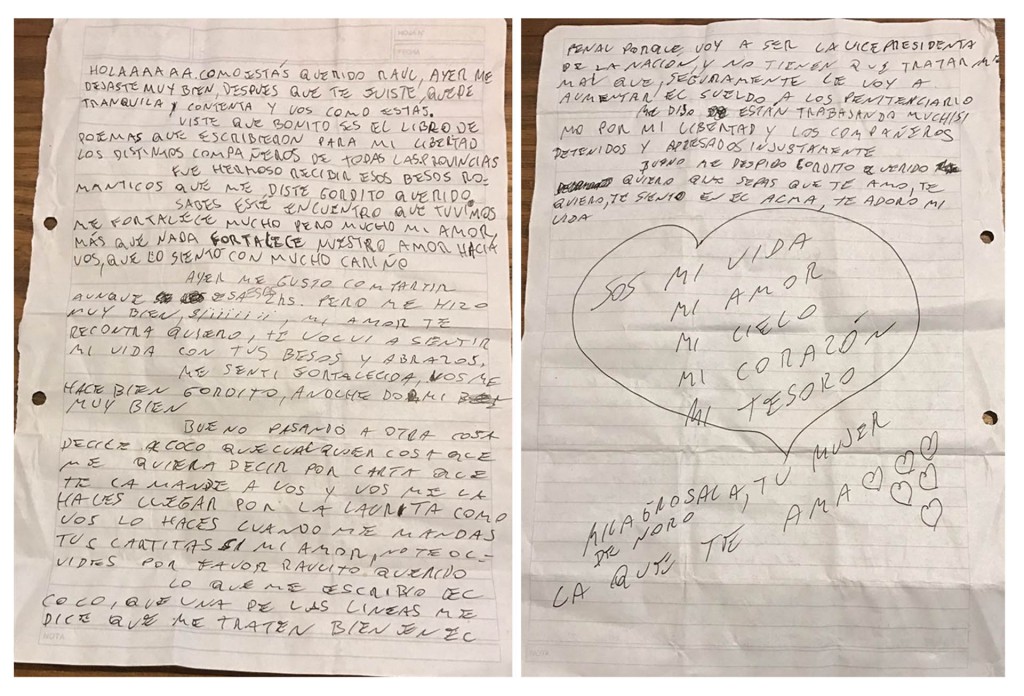 HOJA Nº
FECHA
HOLAAAAAA.COMO ESTÁS QUERIDO RAUL, AYER ME
DEJASTE MUY BIEN, DESPUES QUE TE FUISTE, QUEDE
TRANQUILA Y CONTENTA Y VOS COMO ESTAS.
VISTE QUE BONITO ES EL LIBRO DE
POEMAS QUE ESCRIBIERON PARA MI LIBERTAD
LOS DISTINTOS COMPAÑEROS DE TODAS LAS PROVINCIAS
FUE HERMOSO RECIBIR ESOS BESOS RO-
MANTICOS QUE ME DISTE GORDITO QUERIDO.
SABES ESTE ENCUENTRO QUE TUVIMOS
ME FORTALECE MUCHO PERO MUCHO MI AMOR,
MÁS QUE NADA FORTALECE NUESTRO AMOR HACIA
VOS, QUE LO SIENTO CON MUCHO CARIÑO
AYER ME GUSTO COMPARTIR
AUNQUE SEA ESAS 2hs. PERO ME HIZO
MUY BIEN, Siiiiiii, MI AMOR TE
RECONTRA QUIERO, TE VOLVI A SENTIR
MI VIDA CON TUS BESOS Y ABRAZOS.
ME SENTI FORTALECIDA, VOS ME
HACE BIEN GORDITO, ANOCHE DORMI
MUY BIEN
BUENO PASANDO A OTRA COSA
DECILE AL COCO QUE CUALQUIER COSA QUE
ME QUIERA DECIR POR CARTA QUE
TE LA MANDE A VOS Y VOS ME LA
HACES LLEGAR POR LA LAURITA COMO
VOS LO HACES CUANDO ME MANDAS
TUS CARTITAS SI MI AMOR, NO TE OL-
VIDES POR FAVOR RAULITO QUERIDO
LO QUE ME ESCRIBIO EL
COCO, QUE UNA DE LAS LINEAS ME
DICE QUE ME TRATEN BIEN EN EL
NOTA
PENAL PORQUE VOY A SER LA VICEPRESIDENTA
DE LA NACIÓN, Y NO TIENEN QUE TRATAR ME
MAL QUE, SEGURAMENTE LE VOY A
AUMENTAR EL SUELDO A LOS PENITENCIARIO
ME DIJO ESTÁN TRABAJANDO MUCHISI
MO POR MI LIBERTAD Y LOS COMPAÑEROS
DETENIDOS Y APRESADOS INJUSTAMENTE
BUENO ME DESPIDO GORDITO QUERIDO
QUIERO QUE SEPAS QUE TE AMO, TE
QUIERO, TE SIENTO EN EL ALMA, TE ADORO MI
VIDA
SOS MI VIDA
MI AMOR
MI CIELO
MI CORAZÓN
MI TESORO
MILAGRO SALA, TU MUJER
DE NORO
LA QUE TE AMA
NOTA